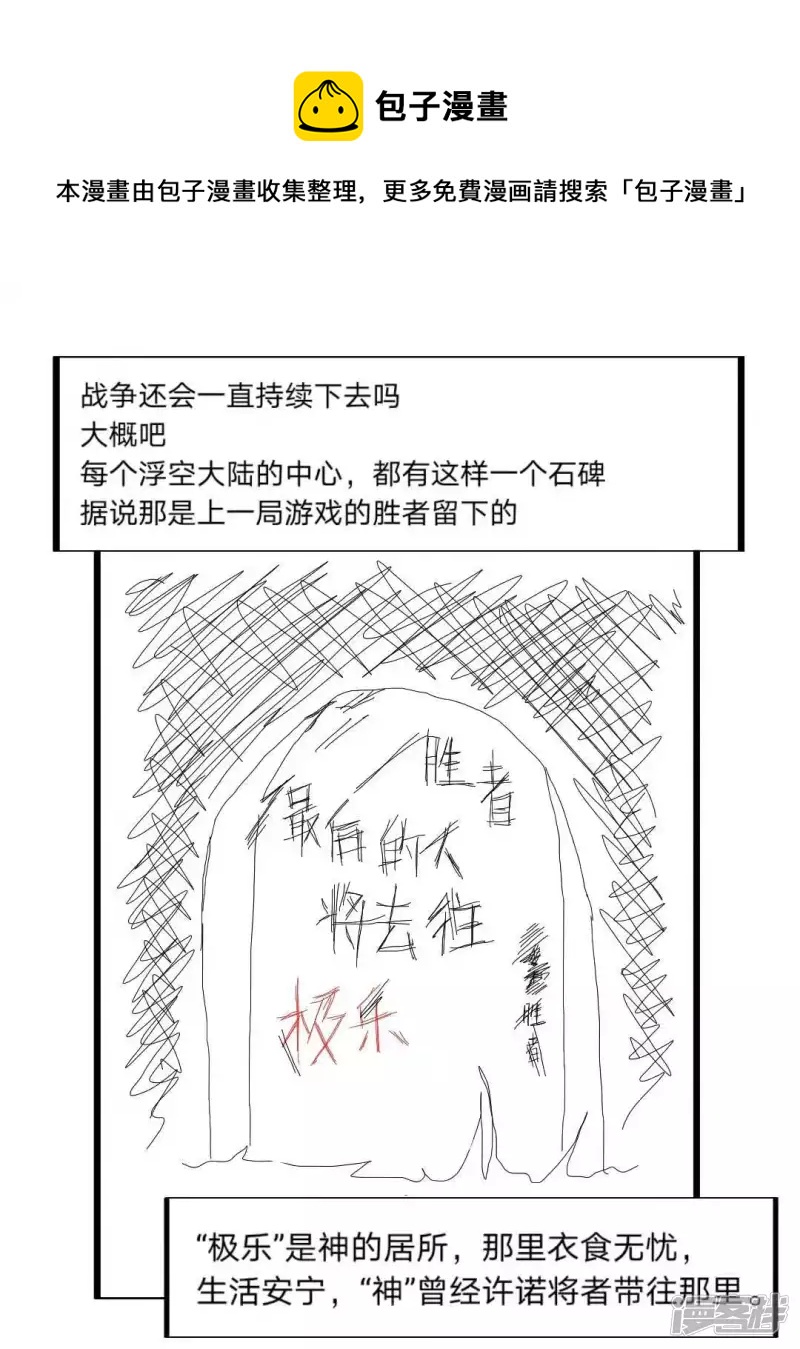 包子漫畫
本漫畫由包子漫畫收集整理，更多免費漫画請搜索「包子漫畫」
战争还会一直持续下去吗
大概吧
每个浮空大陆的中心，都有这样一个石碑
据说那是上一局游戏的胜者留下的
胜者
最后的人
将去往
极乐
胜者
“极乐”是神的居所，那里衣食无忧，
生活安宁，“神”曾经许诺将者带往那里。
漫客栈